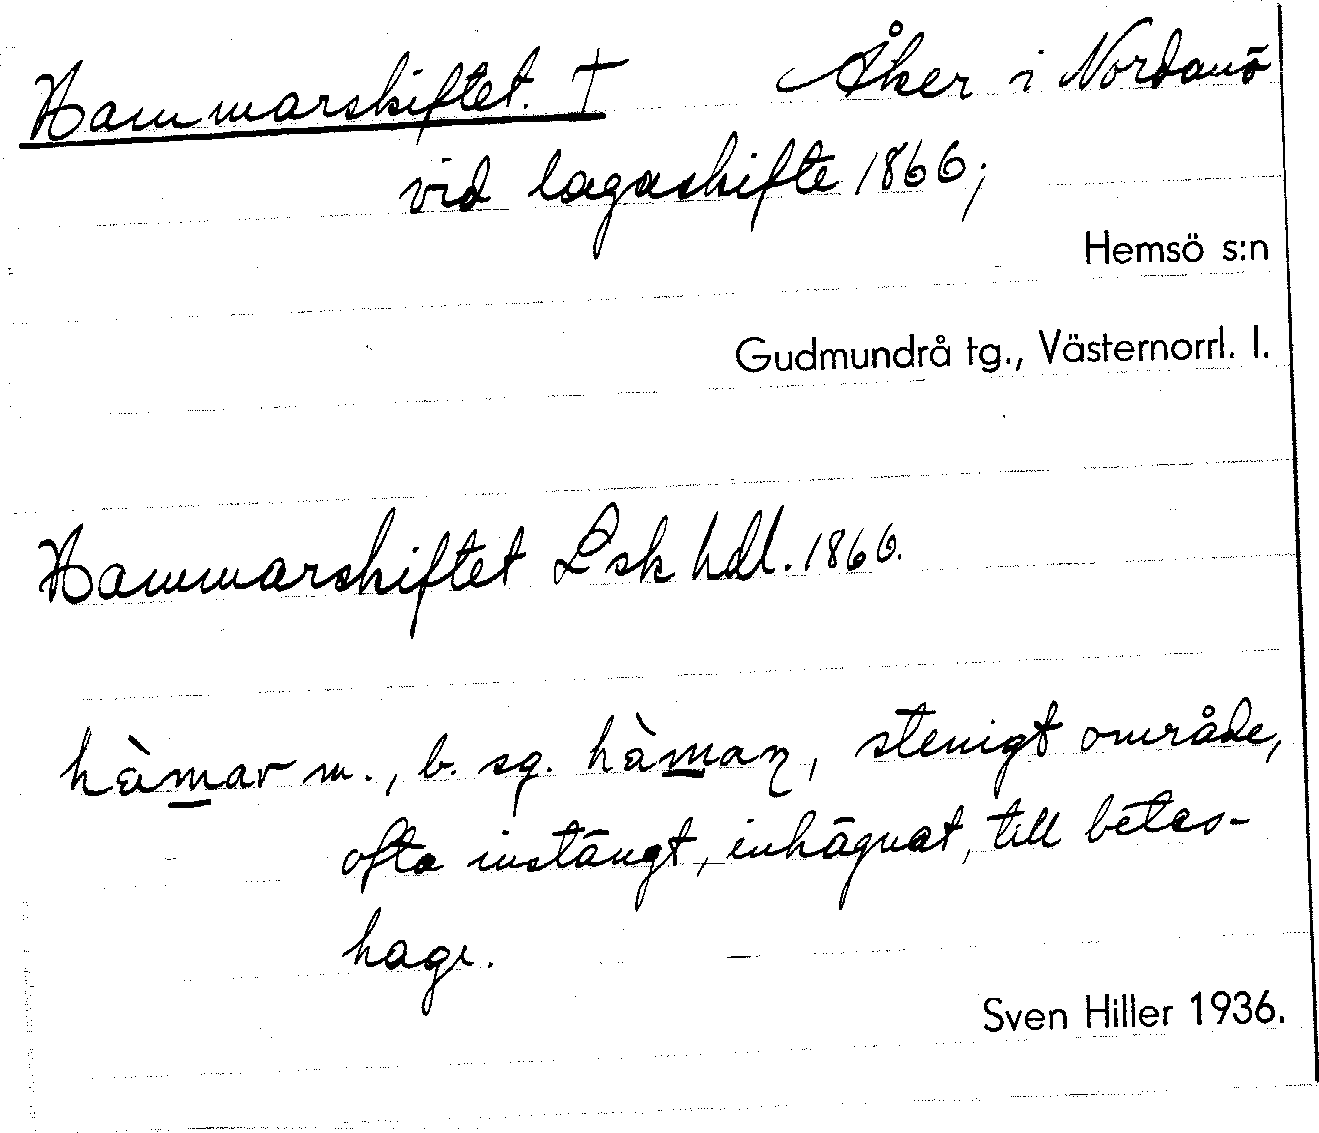 Hammarskiftet. † Åker i Nordanö
vid lagaskifte 1866;
Hemsö s:n
Gudmundrå tg., Västernorrl. l.
Hammarskiftet Lsk hdl. 1866.
hàmar m., b. sg. hàmaɳ, stenigt område,
ofta instängt, inhägnat, till betes-
hage.
Sven Hiller 1936.